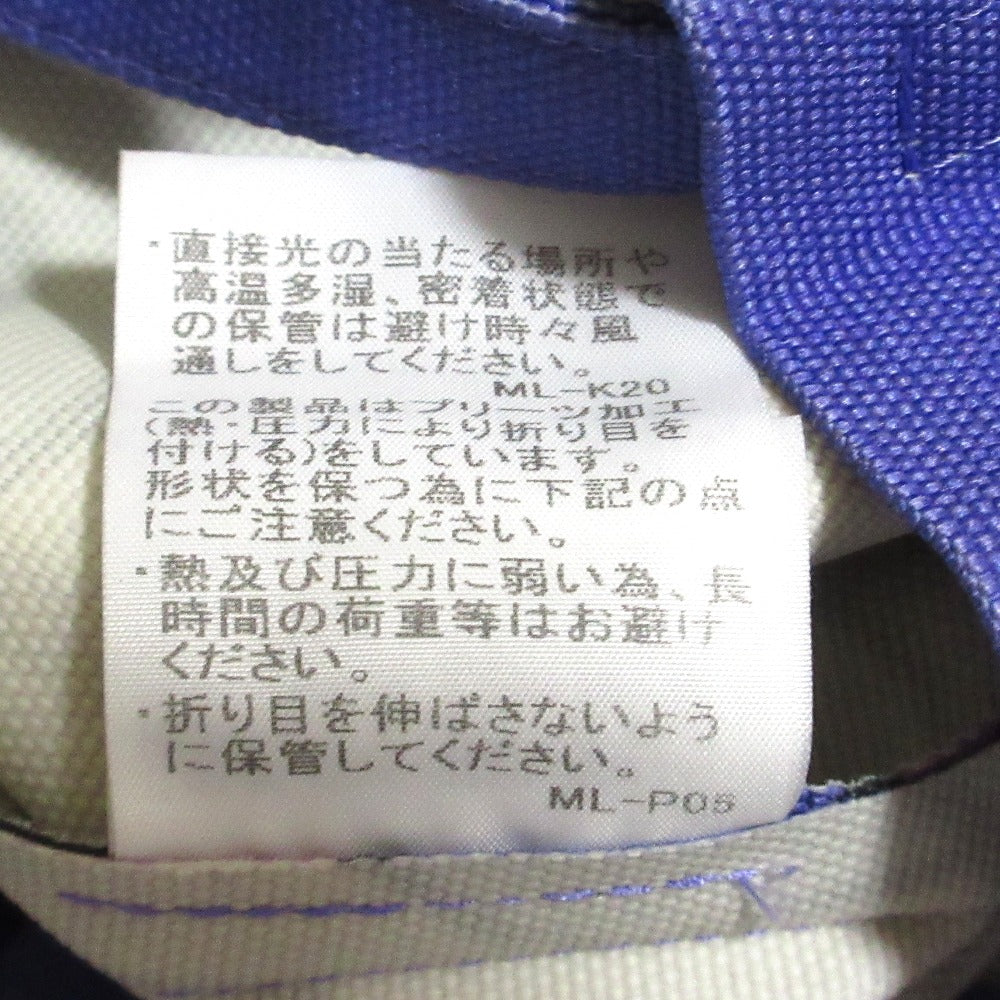 ・直接光の当たる場所や
高温多湿、密着状態で
の保管は避け時々風
通しをしてください。
ML-K20
この製品はプリーツ加工
(熱・圧力により折り目を
付ける)をしています。
形状を保つ為に下記の点
にご注意ください。
・熱及び圧力に弱い為、長
時間の荷重等はお避け
ください。
・折り目を伸ばさないよう
に保管してください。
ML-P05